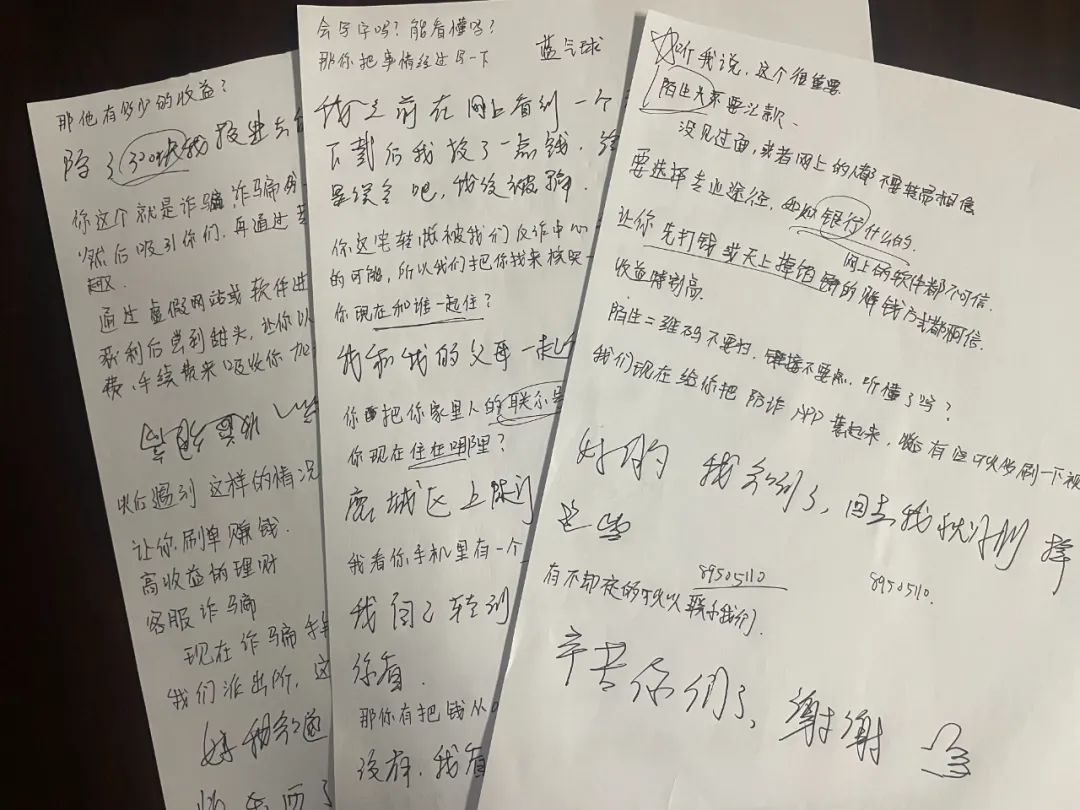 那他有多少的收益?
除了300块我投进去的
你这个就是诈骗,诈骗
然后吸引你们,再通过
趣.
通过虚假网站或软件进
获利后尝到甜头,让你以
费、手续费来吸收你加
以后遇到这样的情况
让你刷单赚钱.
高收益的理财
客服诈骗
现在诈骗手
我们派出所,这
好我知道
会写字吗?能看懂吗?
那你把事情经过写一下
蓝气球
我之前在网上看到一个
下载后我放了一点钱.
是误会吧,我没被骗.
你这笔转账被我们反诈中心
的可能,所以我们把你找来核实一
你现在和谁一起住?
我和我的父母一起住
你把你家里人的联系
你现在住在哪里?
鹿城区上陡门
我看你手机里有一个
我自己转到
你看.
那你有把钱从
没有.我看
听我说,这个很重要
陌生关系要汇款.
没见过面,或者网上的人都不要轻易相信
要选择专业途径,比如银行什么的.
网上的软件都不可信.
让你先打钱或天上掉馅饼的赚钱方式都不可信.
收益特别高.
陌生二维码不要扫.链接不要点.听懂了吗?
我们现在给你把防诈APP装起来,
好的 我知道了,回去我就注册
这些
89505110
89505110.
有不知道的可以联系我们.
辛苦你们了,谢谢